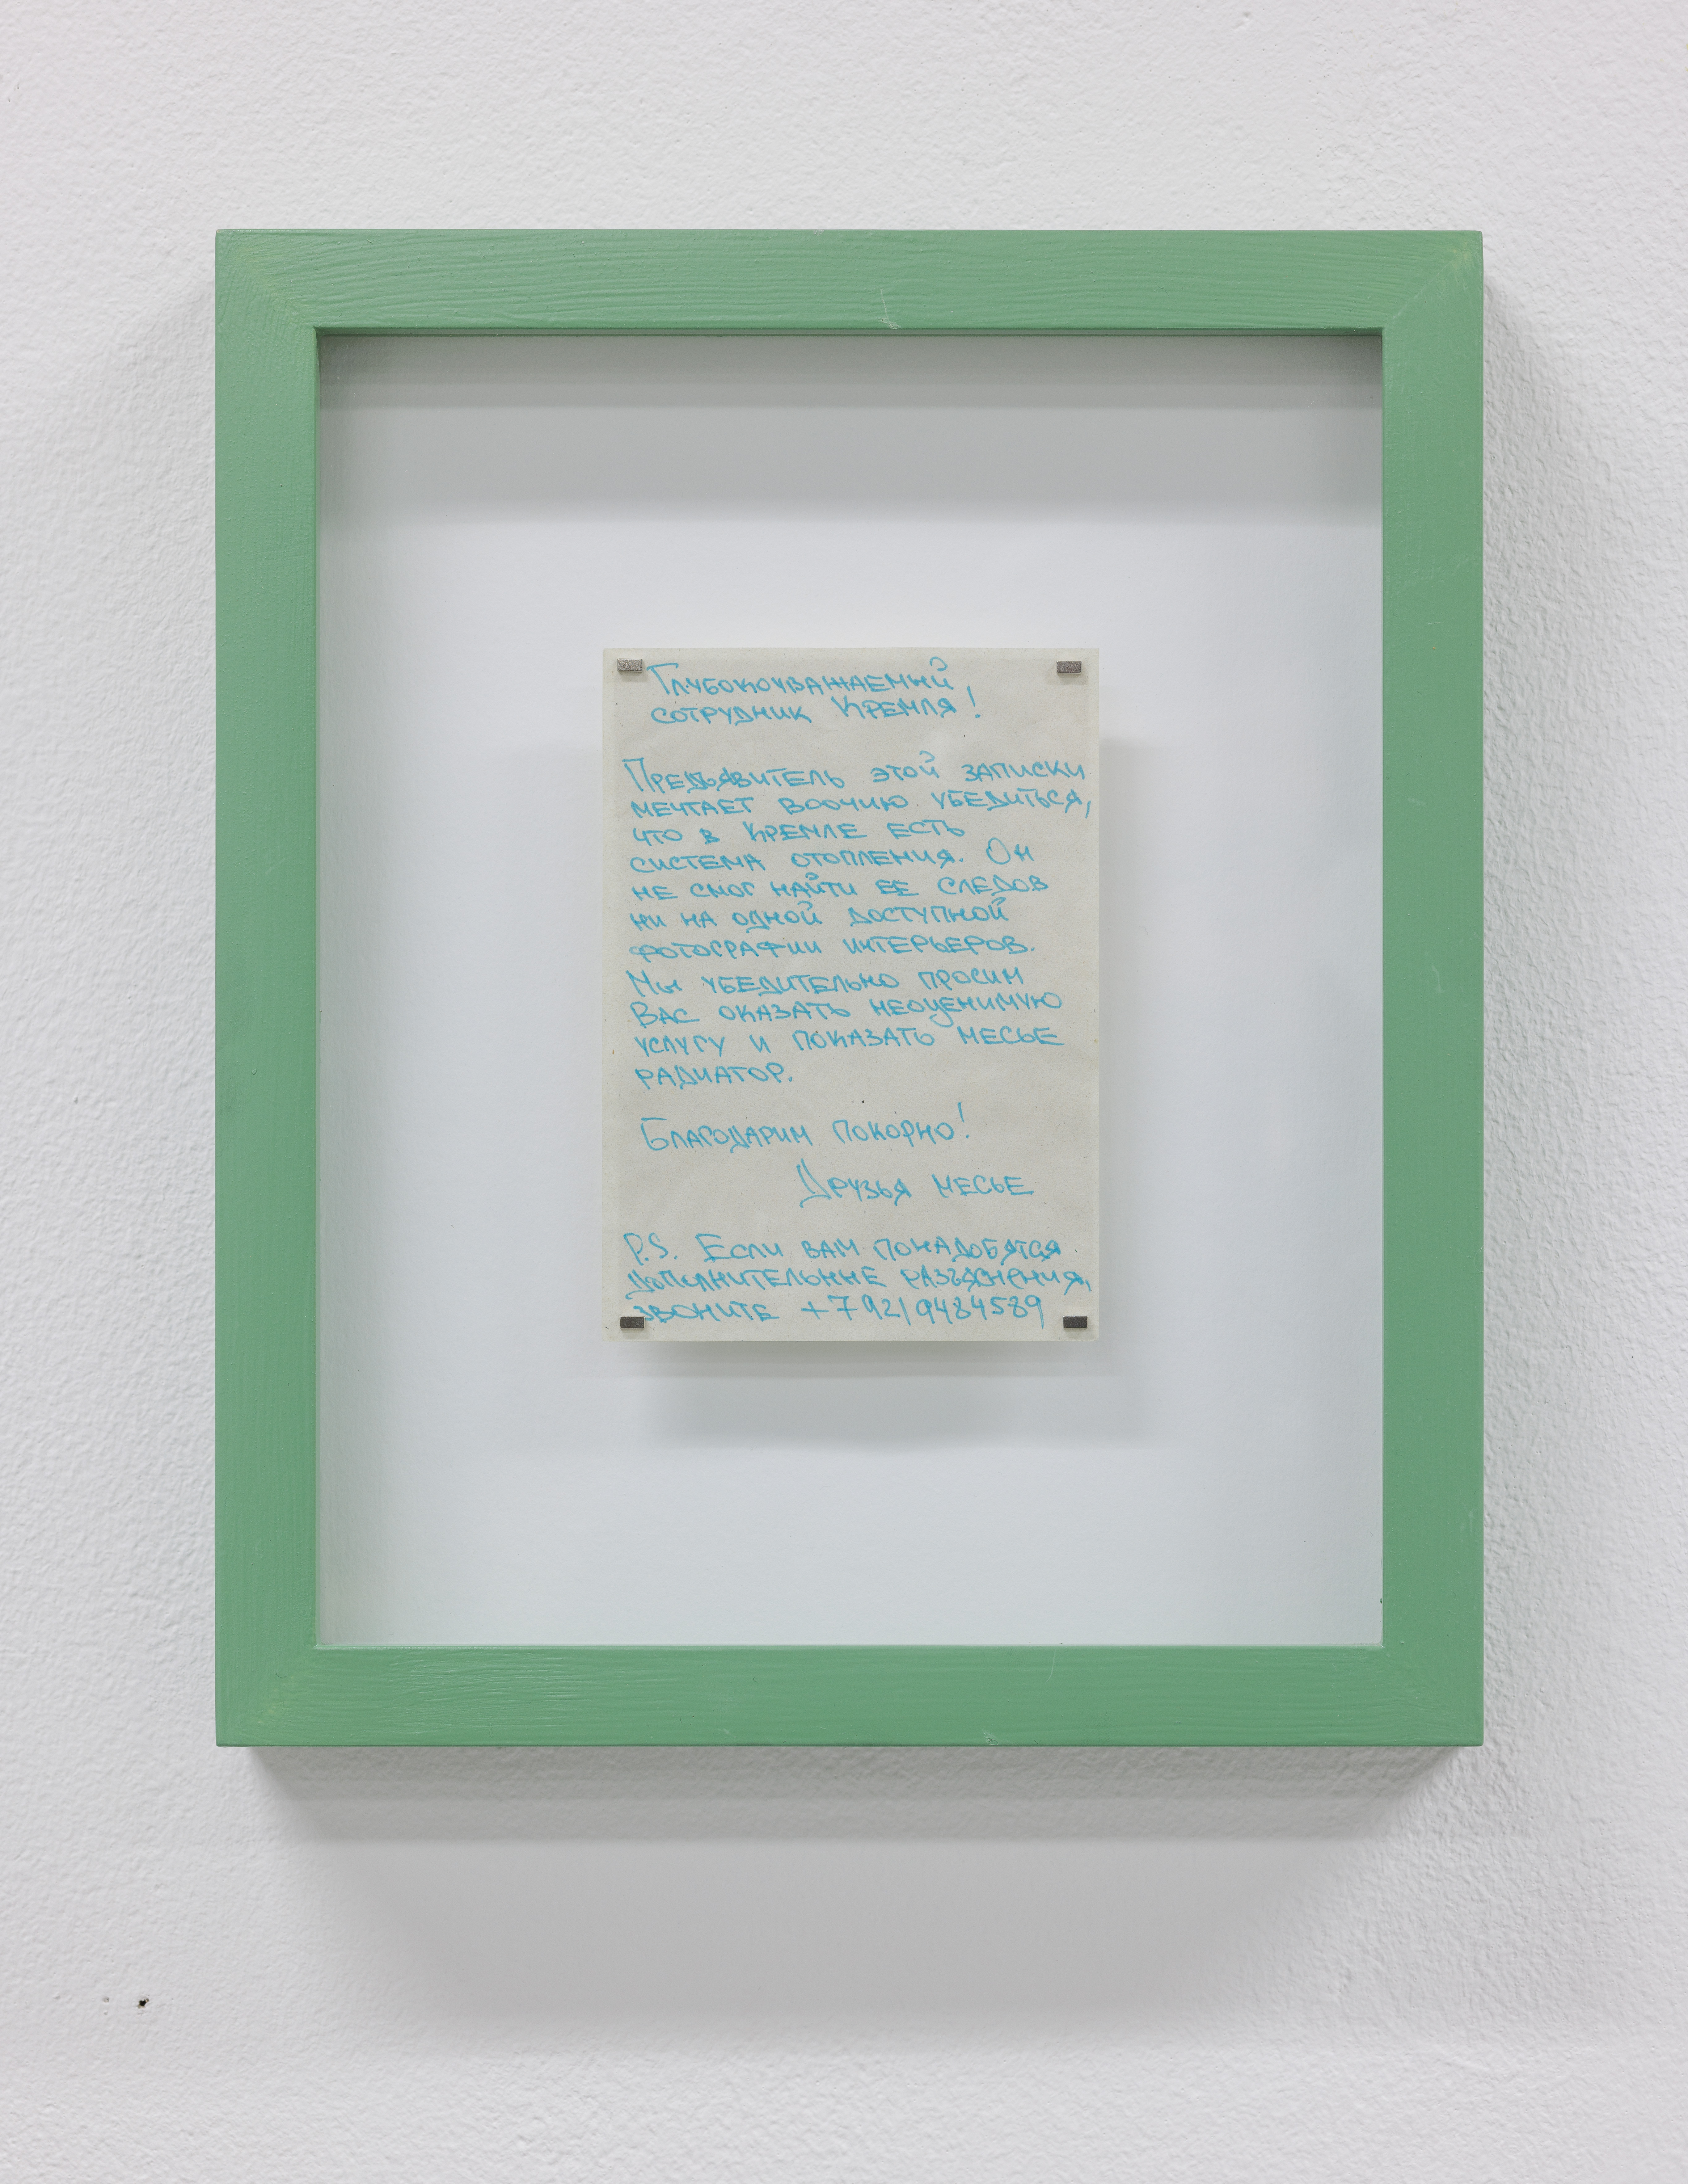 Глубокоуважаемый
сотрудник Кремля!
Предъявитель этой записки
мечтает воочию убедиться,
что в Кремле есть
система отопления. Он
не смог найти ее следов
ни на одной доступной
фотографии интерьеров.
Мы убедительно просим
Вас оказать неоценимую
услугу и показать месье
радиатор.
Благодарим покорно!
Друзья месье
P.S. Если вам понадобятся
дополнительные разъяснения,
звоните +7 921 9484589